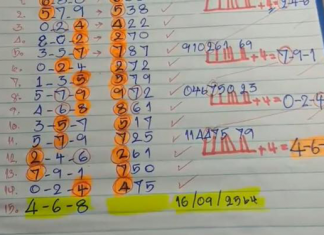 2. 5-7-9 → 538
3. 0-2-4 → 422
4. 8-0-2 → 270
5. 3-5-7 → 787
0-2-4 272
7. 1-3-5 579
8. 5-7-9 972
9. 4-6-8 861
10. 3-5-7 517
11. 5-7-9 725
12. 2-4-6 261
13. 7-9-1 750
14. 0-2-4 475
15. 4-6-8 16/09/2564
910261 69
+4=7-9-1
046750 23
+4=0-2-4
114475 79
+4=4-6-